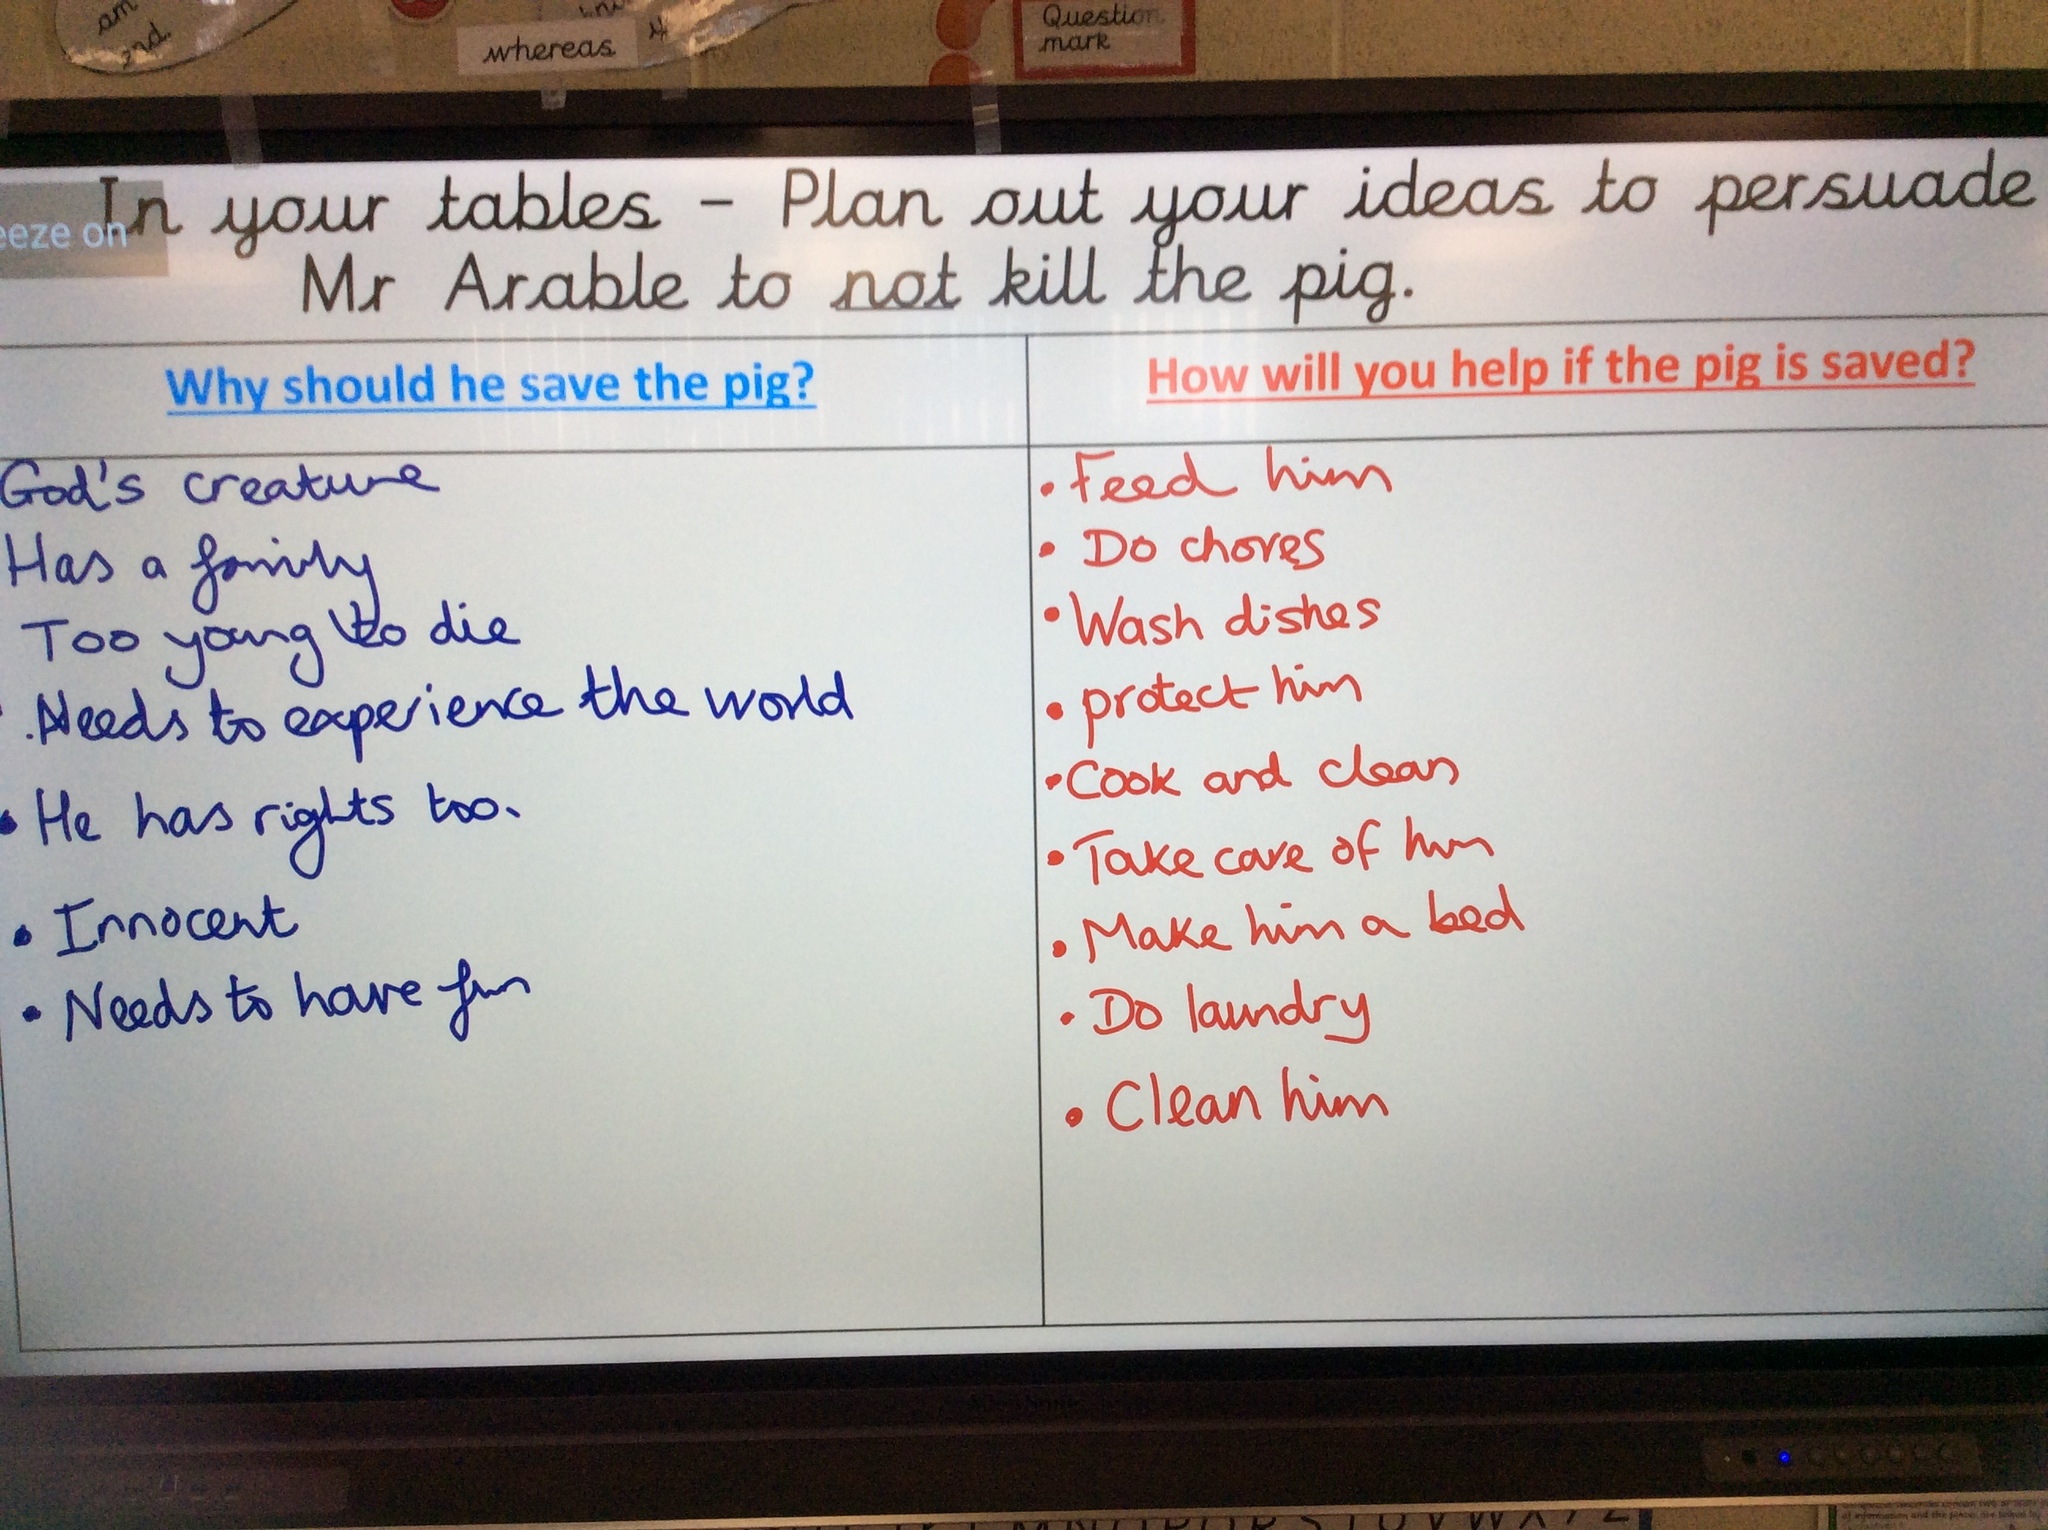 am
2nd.
whereas
Question
mark
eeze on
In your tables - Plan out your ideas to persuade
Mr Arable to not kill the pig.
Why should he save the pig?
God's creature
Has a family
Too young to die
.Needs to experience the world
• He has rights too.
• Innocent
• Needs to have fun
How will you help if the pig is saved?
• Feed him
• Do chores
• Wash dishes
• protect him
• Cook and clean
• Take care of him
• Make him a bed
• Do laundry
• Clean him